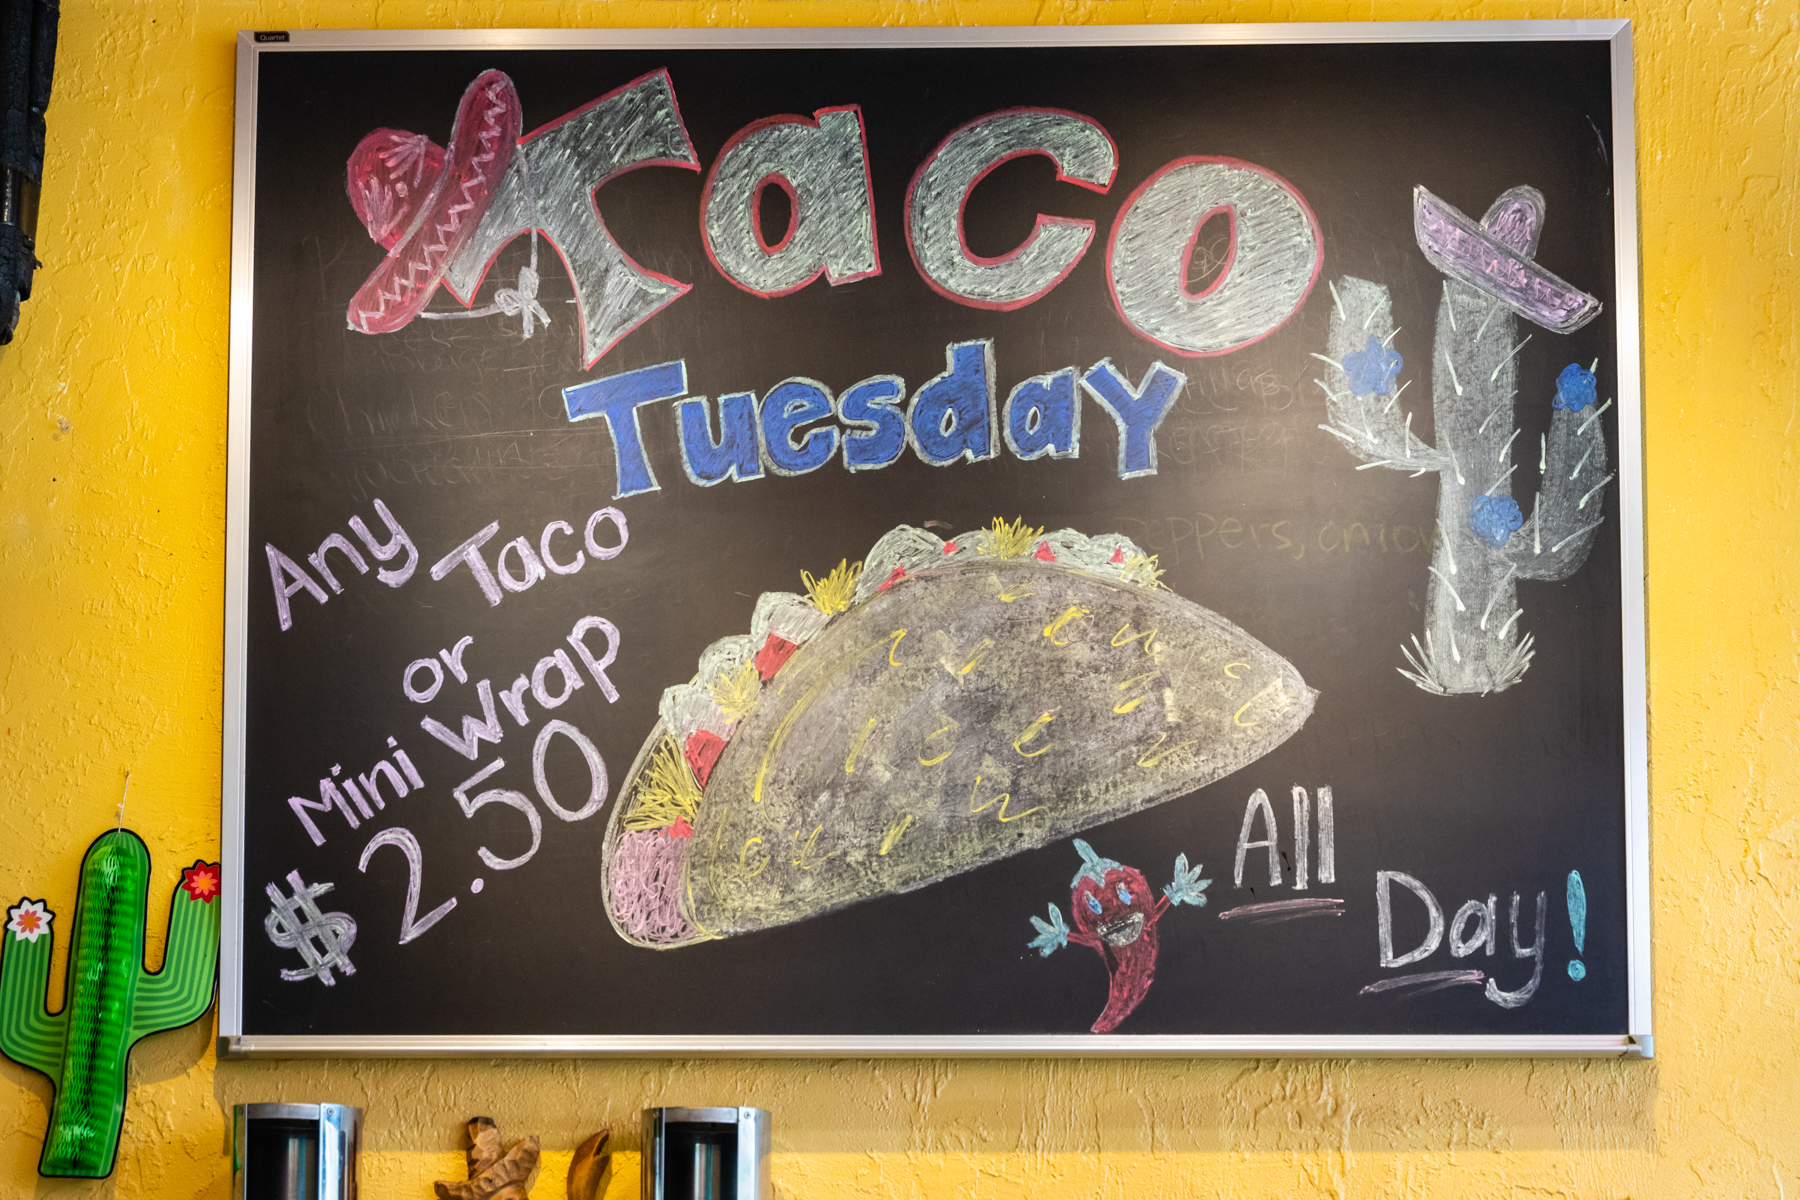 Quartet
Taco
Tuesday
Any Taco
or
Mini Wrap
$2.50
Peppers, onion
All
Day!